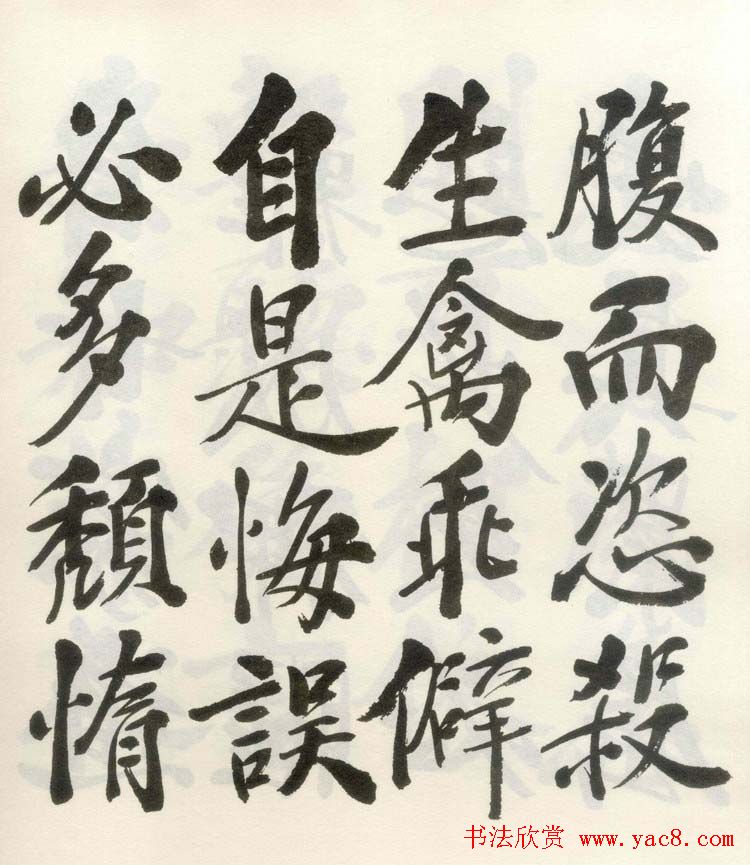 腹而恣殺
生禽乖僻
自是悔誤
必多頹惰
书法欣赏 www.yac8.com